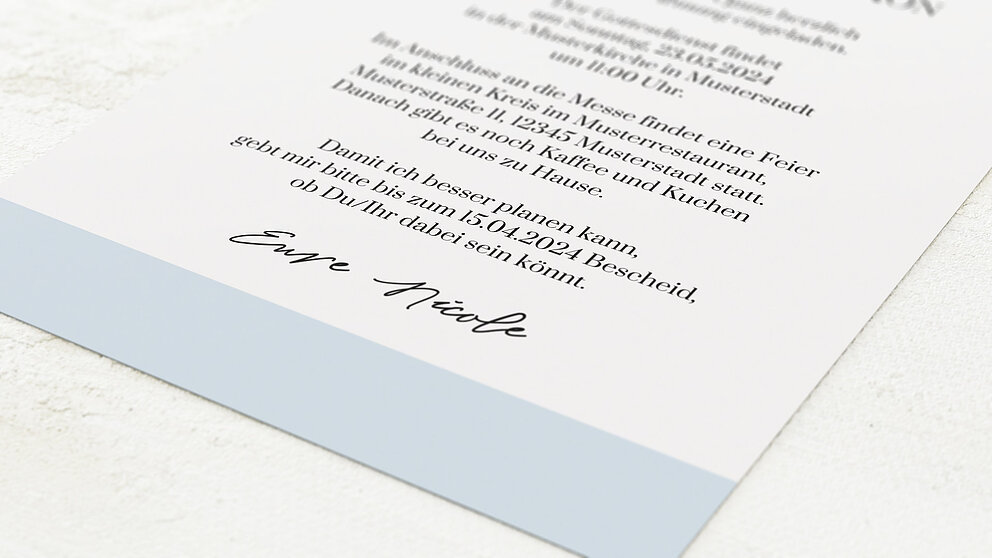 ganz herzlich
eingeladen.
Der Gottesdienst findet
am Sonntag, 23.05.2024
in der Musterkirche in Musterstadt
um 11:00 Uhr.
Im Anschluss an die Messe findet eine Feier
im kleinen Kreis im Musterrestaurant,
Musterstraße 11, 12345 Musterstadt statt.
Danach gibt es noch Kaffee und Kuchen
bei uns zu Hause.
Damit ich besser planen kann,
gebt mir bitte bis zum 15.04.2024 Bescheid,
ob Du/Ihr dabei sein könnt.
Eure Nicole